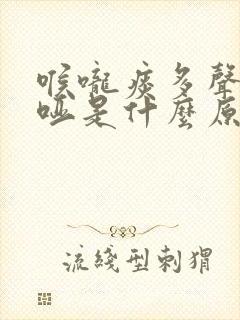 喉嚨痰多聲
啞是什麼原
流綫型刺猬